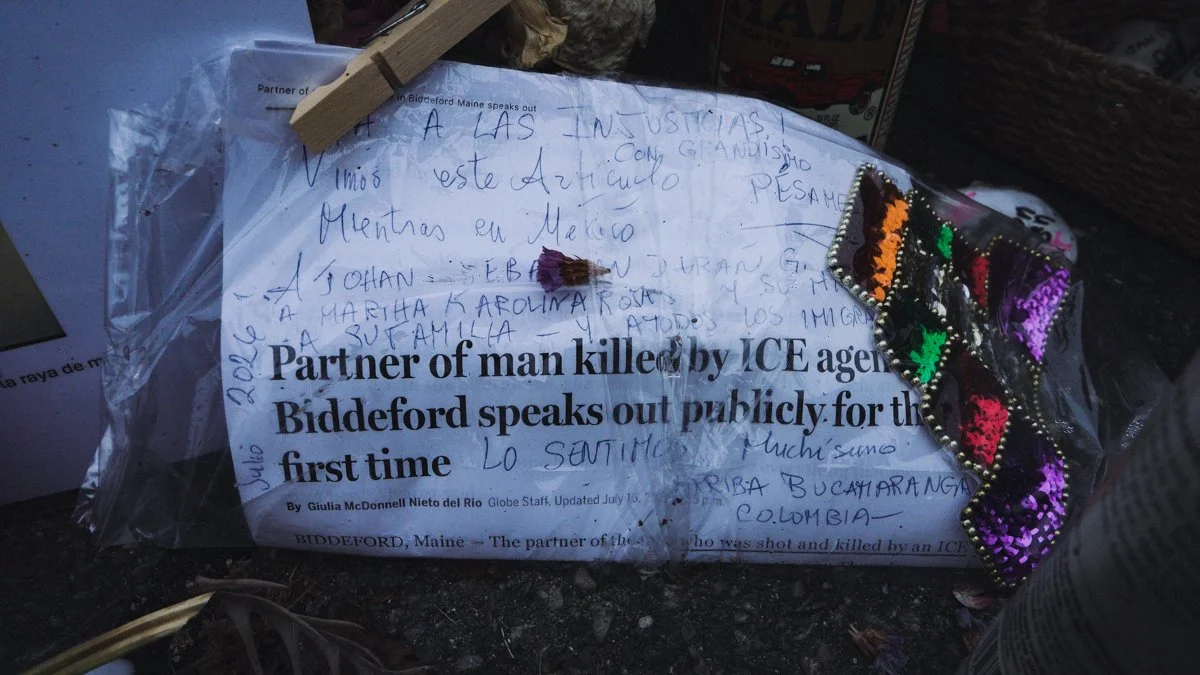 HALF
Partner of in Biddeford Maine speaks out
A LAS INJUSTICIAS!
CON GRANDISIMO
Vimos este Artículo PÉSAME
Mientras en México
A JOHAN SEBA N DURAN G. Y SU
A MARTHA KAROLINA ROJAS
A SU FAMILIA — Y A TODOS LOS IMIGRA
Partner of man killed by ICE agen
Biddeford speaks out publicly for th
first time LO SENTIMOS Muchísimo
By Giulia McDonnell Nieto del Rio Globe Staff, Updated July 16,
RIBA BUCAMARANGA
COLOMBIA—
BIDDEFORD, Maine — The partner of the who was shot and killed by an ICE
Julio 2026
la raya de m